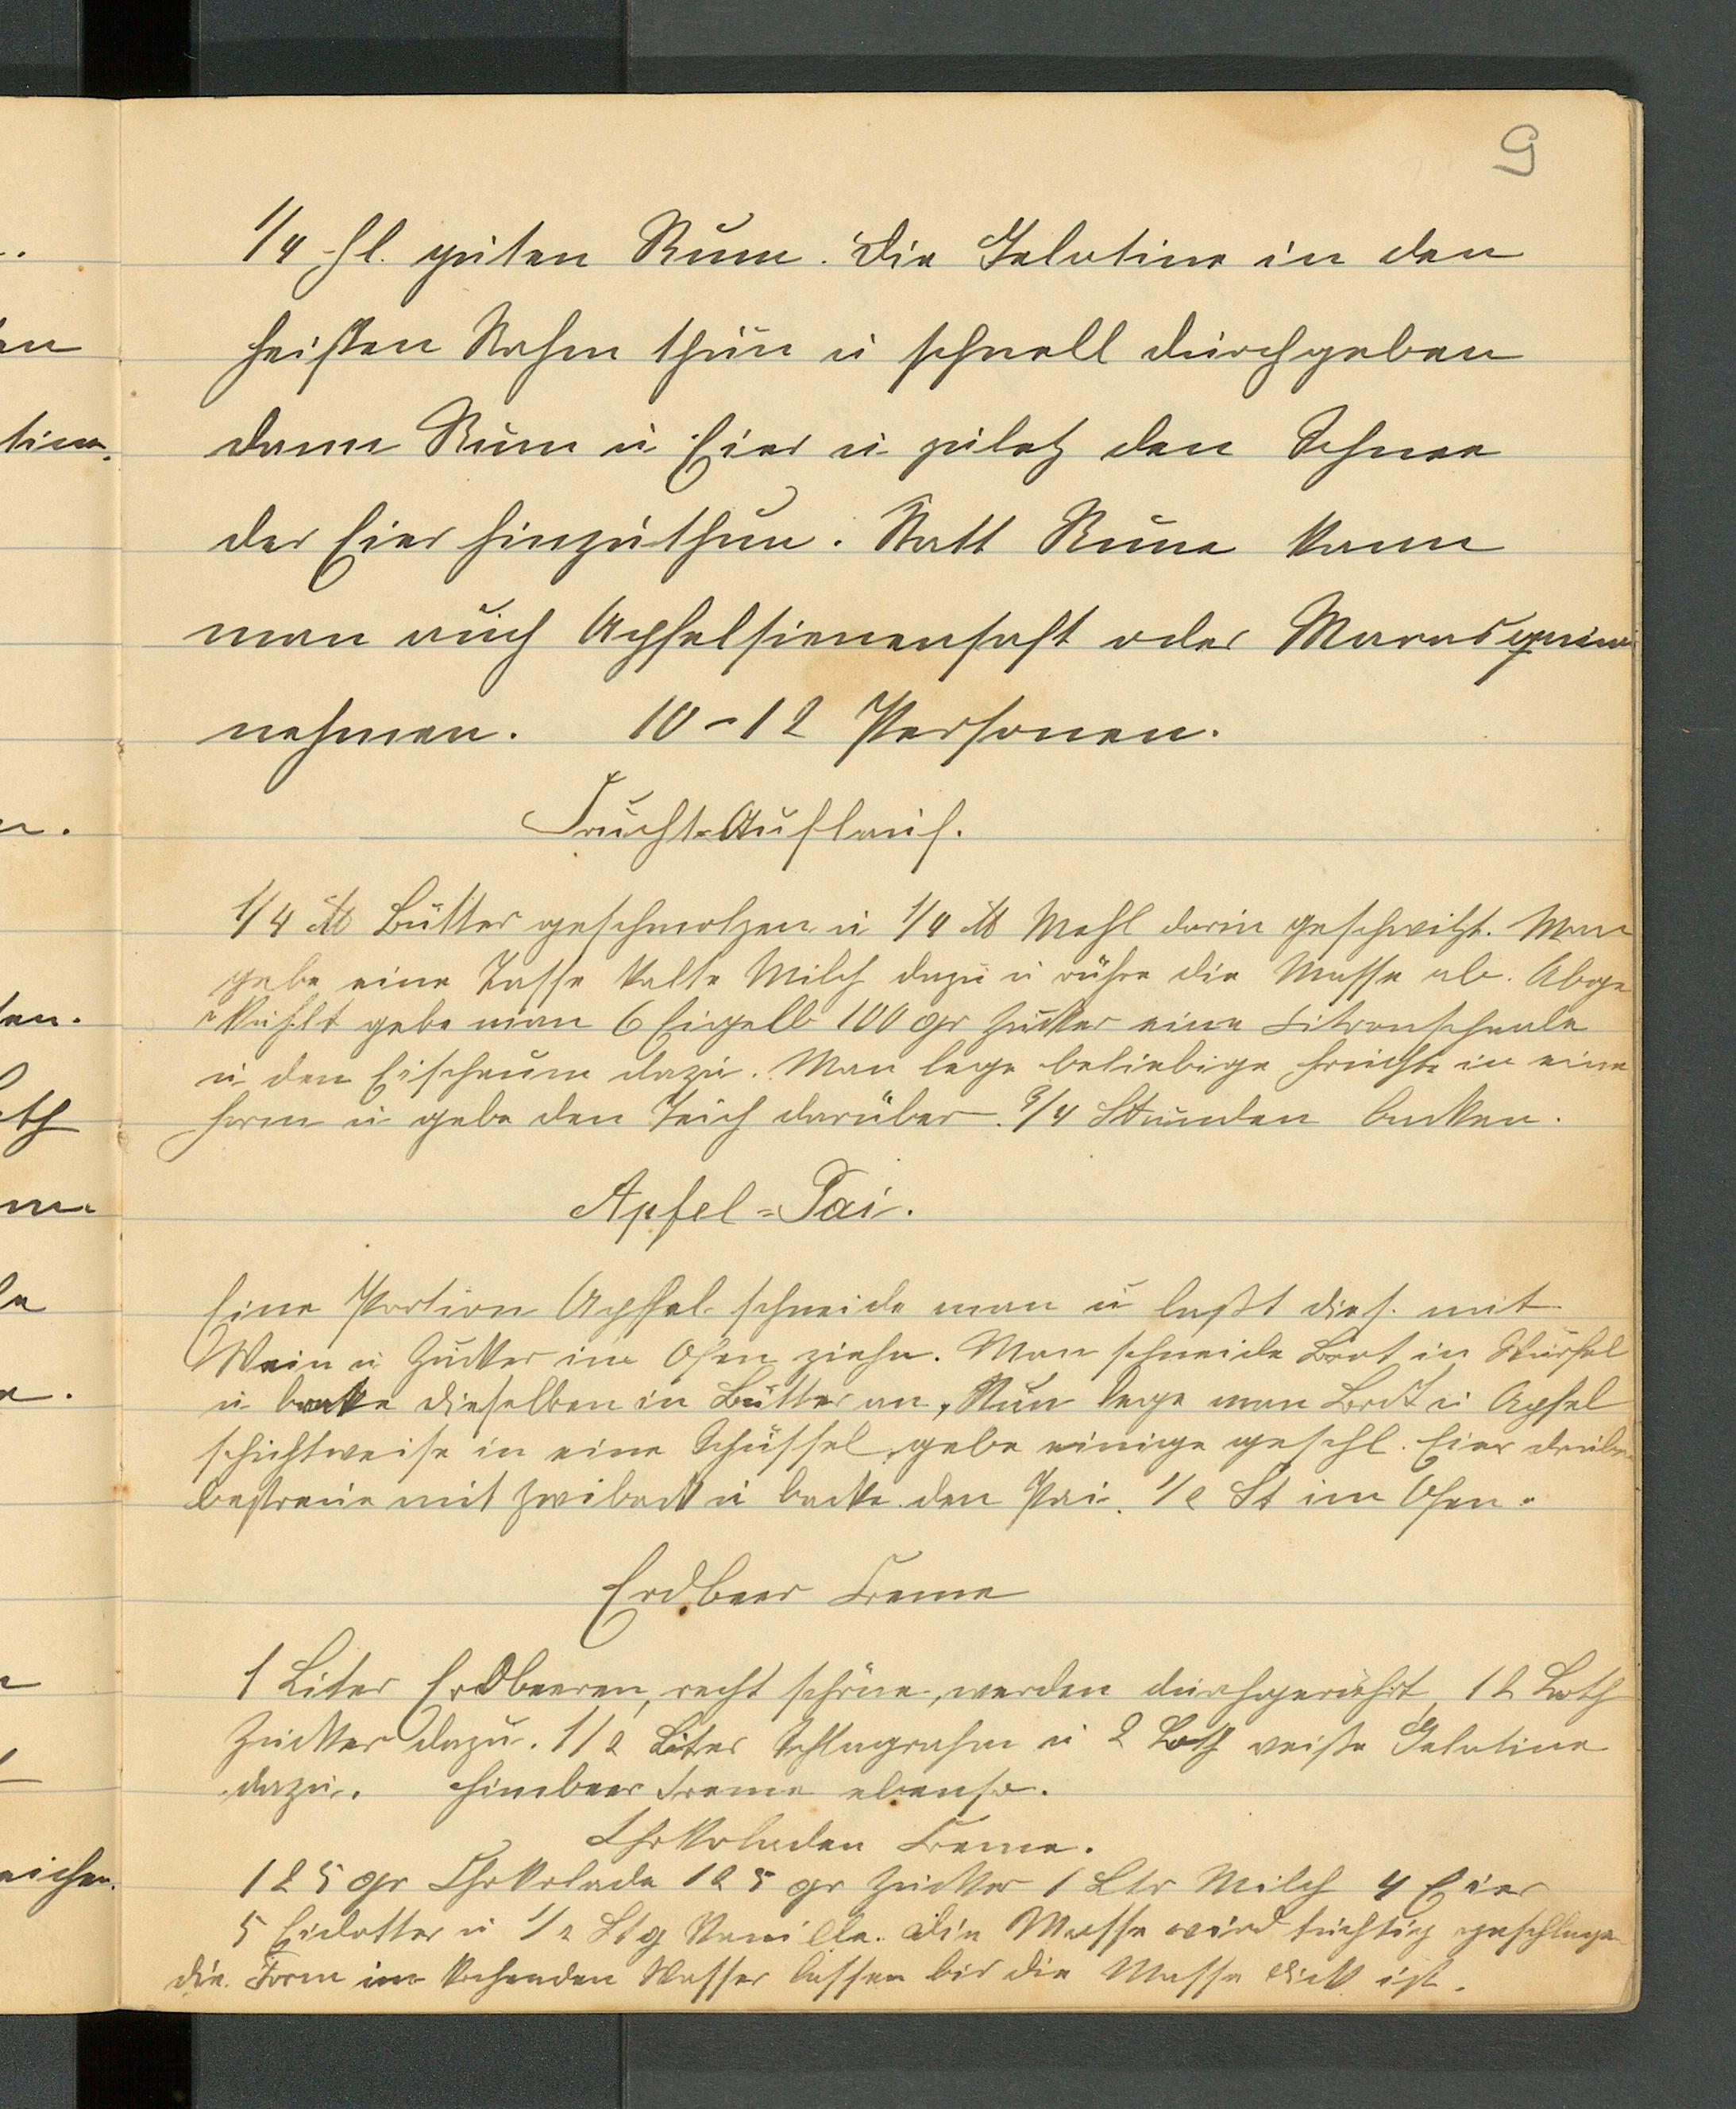 9
1/4 Fl. guten Rum. Die Gelatine in den
heißen Rahm thun u schnell durchgeben
dann Rum u Eier u zuletz den Schnee
der Eier hinzuthun. Statt Rum kann
man auch Apfelsienensaft oder Marasquino
nehmen. 10-12 Personen.
Frucht-Auflauf.
1/4 ℔ Butter geschmolzen u 1/4 ℔ Mehl darin geschwitzt. Man
gebe eine Tasse kalte Milch dazu u rühre die Masse ab. Abge
kühlt gebe man 6 Eigelb 100 gr Zucker eine Citronschaale
u den Eischaum dazu. Man lege beliebige Früchte in eine
Form u gebe den Teich darüber. 3/4 Stunden backen.
Apfel=Pai.
Eine Portion Apfel schneide man u laßt dies. mit
Wein u Zucker im Ofen ziehn. Man schneide Brot in Würfel
u backe dieselben in Butter an, Nun lege man Brot u Apfel
schichtweise in eine Schüssel, gebe einige geschl. Eier drüber
bestreue mit Zwiback u backe den Pai. 1/2 St im Ofen.
Erdbeer Creme
1 Liter Erdbeeren, recht schöne, werden durchgerührt, 12 Loth
Zucker dazu. 1/2 Liter Schlagrahm u 2 Loth weiße Gelatine
dazu. Himbeer Creme ebenso.
Chokoladen Creme.
125 gr Chokolade 125 gr Zucker 1 Ltr Milch 4 Eier
5 Eidotter u 1/2 Stg Vanille. Die Masse wird tüchtig geschlagen
die Form im kochenden Wasser lassen bis die Masse dick ist.